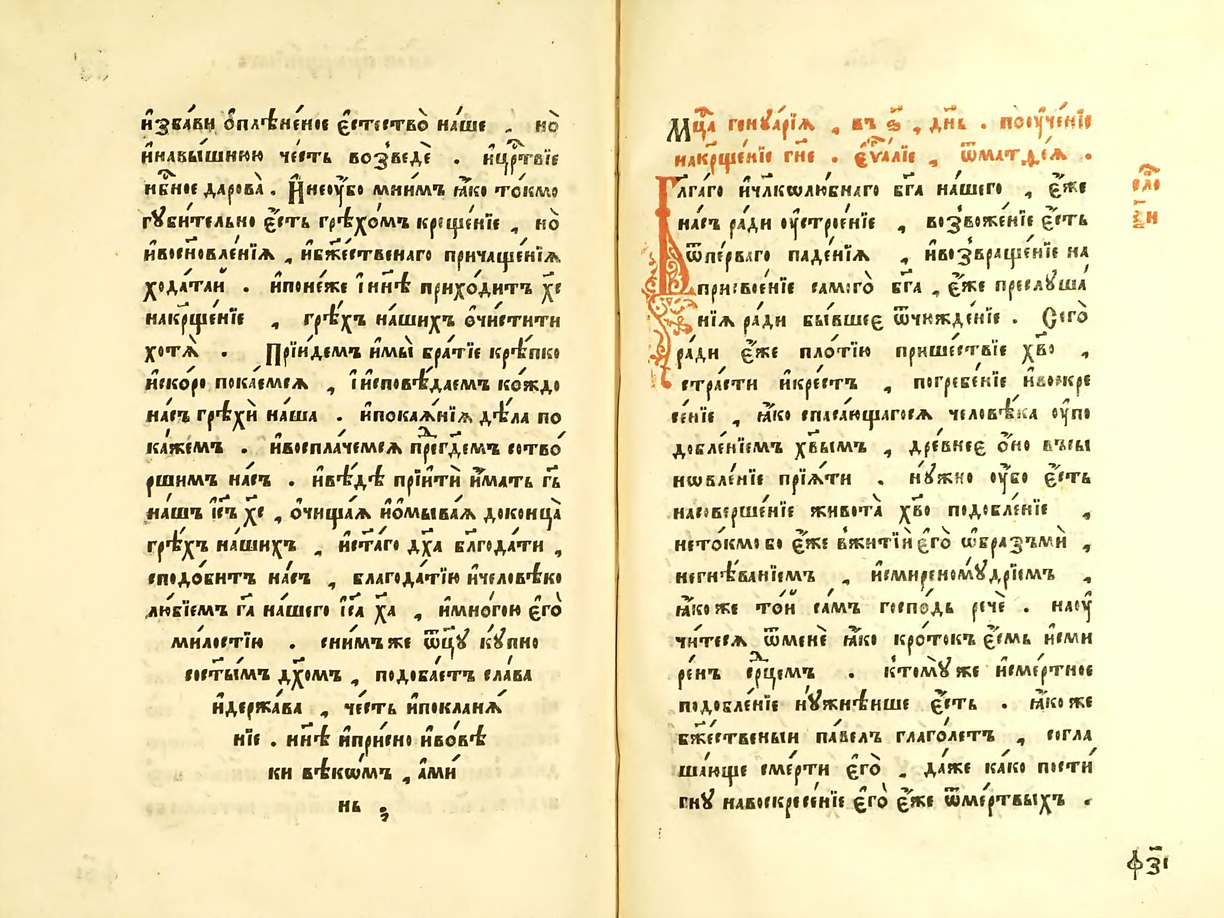 и҆зба́ви ѻ҆плѣне́ное є҆стество̀ на́ше , но̀
и҆навы́шнюю че́сть возведѐ . и҆црⷭ҇твїе
нбⷭ҇ное дарова̀ . И҆неоу҆́бо мни́мъ ꙗ҆́ко то́кмо
гꙋби́телно є҆́сть грѣхо́мъ креще́нїе , но̀
и҆восновле́нїѧ , и҆бжⷭ҇е́ственаго причаще́нїѧ
хода́таи . и҆поне́же і҆ нн҃ѣ прихо́дитъ хⷭ҇е
накрⷳ҇щенїе , грѣ́хъ на́шихъ ѻ҆чи́стити
хотѧ̀ . Прїи́демъ и҆мы̀ бра́тїе крѣ́пко
и҆ско́ро пока́емсѧ , і҆исповѣ́даемъ ко́ждо
на́съ грѣхѝ на́ша . и҆покаѧ́нїѧ дѣ́ла по
ка́жемъ . и҆воспла́чемсѧ преⷣг҇де́мъ сотво́
ршимъ на́съ . и҆вѣ́дѣ прїитѝ и҆́мать гь҃
на́шъ і҆с҃ъ хе҃ , ѻ҆чища́ѧ и҆ѻ҆мыва́ѧ доконца̀
грѣ́хъ на́шихъ , и҆ст҃а́го дх҃а бл҃года́ти ,
сподо́битъ на́съ , благода́тїю и҆человѣ́ко
лю́бїемъ га҃ на́шего і҆с҃а ха҃ , и҆мно́гою є҆го̀
ми́лостїю . сни́мъже ѿц҃ꙋ кꙋ́пно
сост҃ы́мъ дх҃омъ , подоба́етъ сла́ва
и҆держа́ва , че́сть и҆покланѧ́
нїе . нн҃ѣ и҆при́сно и҆вовѣ́
ки вѣкѡ́мъ , а҆ми́
нь ;
Мцⷭ҇а генꙋа́рїѧ , въ ѕ҃ , де́нь . пооуче́нїе
накрⷳ҇ще́нїе гн҃е . є҆ѵⷢ҇а́лїе , ѿматѳе́ѧ .
Бл҃га́го и҆чл҃колю́бнаго бг҃а на́шего , є҆́же
на́съ ра́ди оу҆строе́нїе , возвоже́нїе є҆́сть
ѿпе́рваго паде́нїѧ , и҆возвраще́нїе на
присвое́нїе само́го бг҃а , є҆́же преслꙋша́
нїѧ ра́ди бы́вшеє ѿчꙋжде́нїе . Сего̀
ра́ди є҆́же пло́тїю прише́ствїе хв҃о ,
стра́сти и҆кре́стъ , погребе́нїе и҆воскре
се́нїе , ꙗ҆́ко спаса́ющагосѧ человѣ́ка оу҆по
добле́нїемъ хв҃ымъ , дре́внее ѻ҆́но въсы
новле́нїе прїѧ́ти . нꙋ́жно оу҆́бо є҆́сть
насоверше́нїе живота̀ хв҃о подобле́нїе ,
нетоќмо бо є҆́же вжитїи̑ є҆го̀ ѡ҆́бразъми ,
негнѣ́ванїемъ , и҆смиреномꙋ́дрїемъ ,
ꙗ҆́коже то́й са́мъ госпо́дь речѐ . наоу҆
чи́тесѧ ѿменѐ ꙗ҆́ко кро́токъ є҆́смь и҆сми
ре́нъ срⷣцемъ . ктомꙋ́же и҆сме́ртное
подобле́нїе нꙋжнѣ́ише є҆́сть . ꙗ҆́коже
бж҃е́ственыи па́велъ глаго́летъ , согла
ша́юще сме́рти є҆го̀ , да́же ка́ко пости́
гнꙋ навоскресе́нїе є҆го̀ є҆́же ѿме́ртвыхъ .
фз҃і